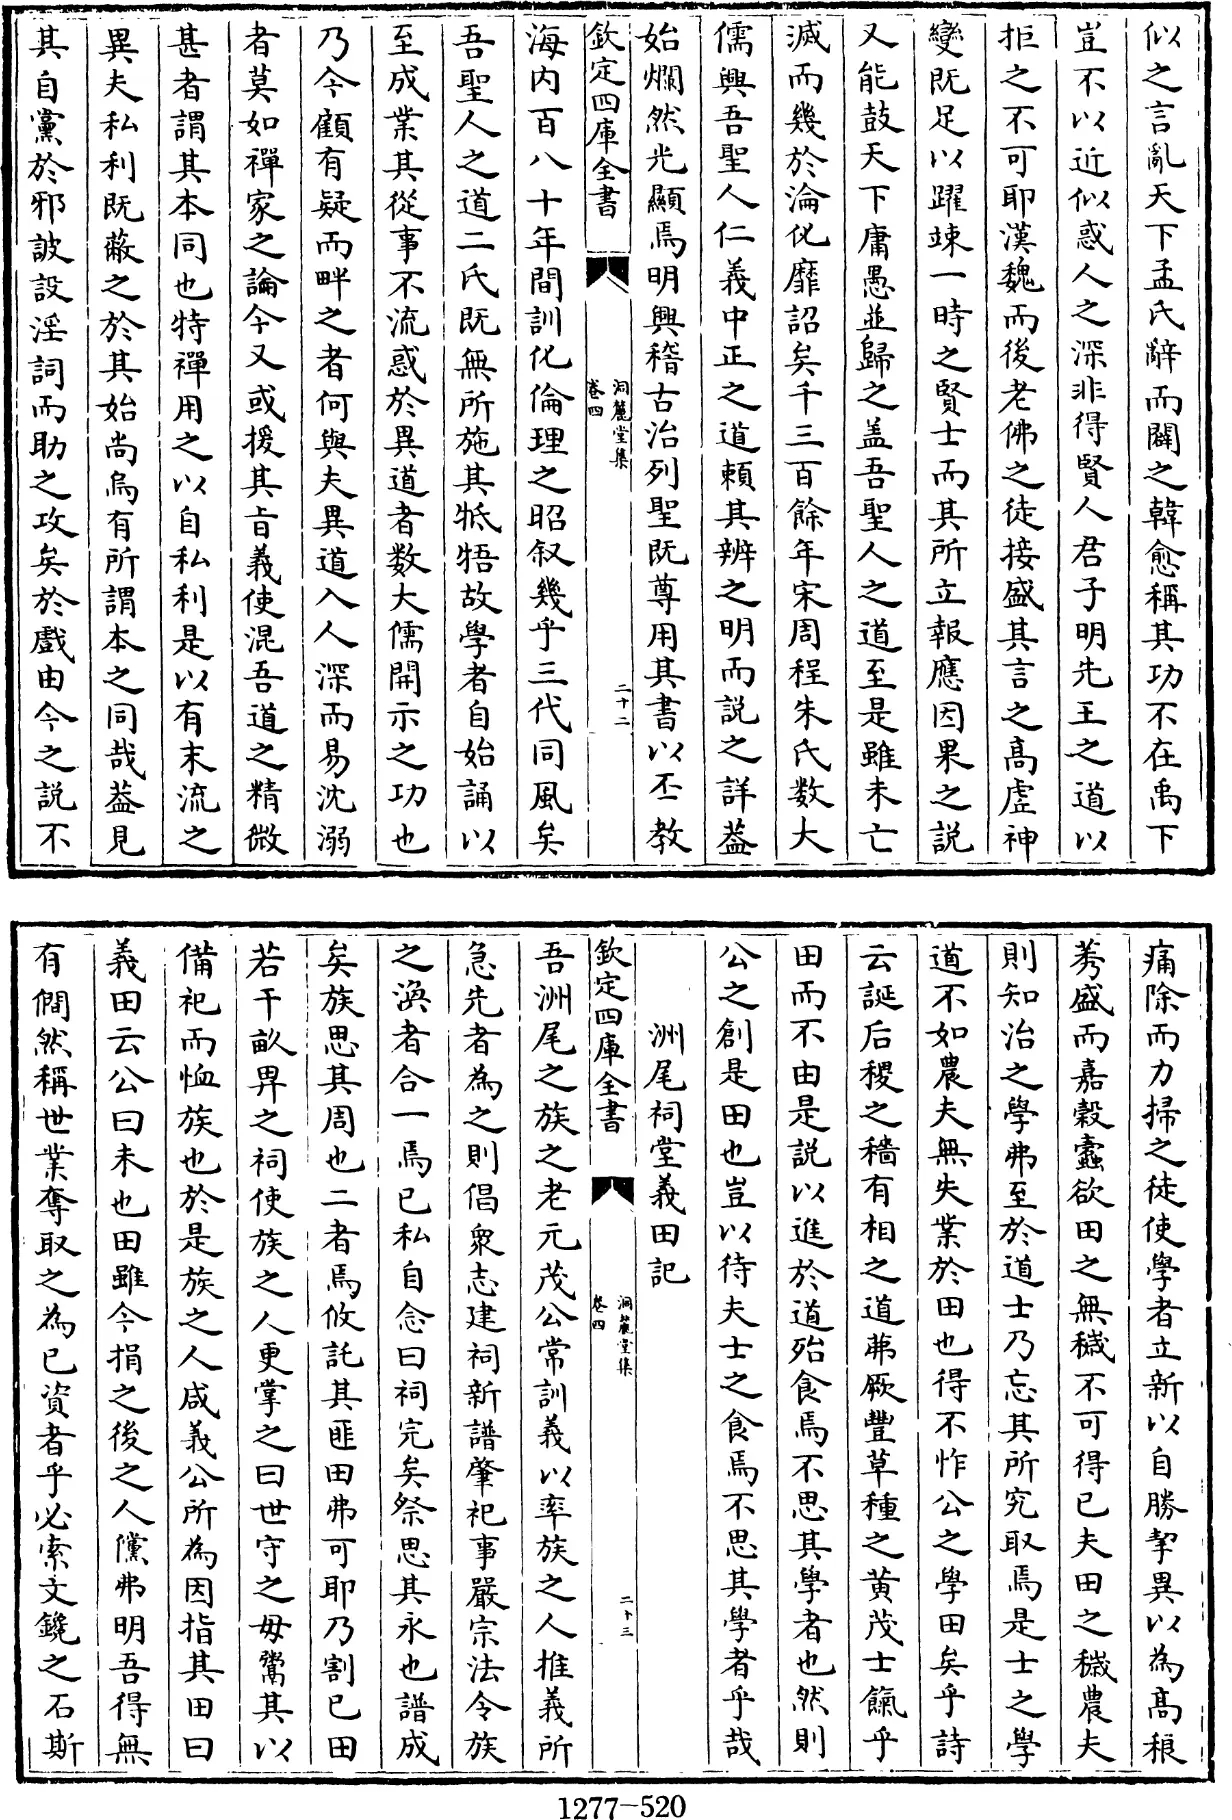 似之言亂天下孟氏辭而闢之韓愈稱其功不在禹下
豈不以近似惑人之深非得賢人君子明先王之道以
拒之不可耶漢魏而後老佛之徒接盛其言之高虛神
變既足以躍竦一時之賢士而其所立報應因果之說
又能鼓天下庸愚並歸之盖吾聖人之道至是雖未亡
滅而幾於淪化靡詔矣千三百餘年宋周程朱氏数大
儒興吾聖人仁義中正之道頼其辨之明而說之詳葢
始爛然光顯焉明興稽古治列聖既尊用其書以丕教
欽定四庫全書
洞麓堂集
卷四
二十二
海内百八十年間訓化倫理之昭叙幾乎三代同風矣
吾聖人之道二氏既無所施其牴牾故學者自始誦以
至成業其從事不流惑於異道者数大儒開示之功也
乃今顧有疑而畔之者何與夫異道入人深而易沈溺
者莫如禪家之論今又或援其旨義使混吾道之精微
甚者謂其本同也特禪用之以自私利是以有末流之
異夫私利既蔽之於其始尚烏有所謂本之同哉葢見
其自黨於邪詖設淫詞而助之攻矣於戲由今之説不
痛除而力掃之徒使學者立新以自勝挈異以為高稂
莠盛而嘉穀蠹欲田之無穢不可得已夫田之穢農夫
則知治之學弗至於道士乃忘其所究取焉是士之學
道不如農夫無失業於田也得不怍公之學田矣乎詩
云誕后稷之穡有相之道茀厥豐草種之黄茂士餼乎
田而不由是説以進於道殆食焉不思其學者也然則
公之創是田也豈以待夫士之食焉不思其學者乎哉
洲尾祠堂義田記
欽定四庫全書
洞麓堂集
卷四
二十三
吾洲尾之族之老元茂公常訓義以率族之人推義所
急先者為之則倡衆志建祠新譜肇祀事嚴宗法令族
之渙者合一焉已私自念曰祠完矣祭思其永也譜成
矣族思其周也二者焉攸託其匪田弗可耶乃割已田
若干畝畀之祠使族之人更掌之曰世守之毋鬻其以
備祀而恤族也於是族之人咸義公所為因指其田曰
義田云公曰未也田雖今捐之後之人儻弗明吾得無
有僩然稱世業奪取之為已資者乎必索文鑱之石斯
1277-520